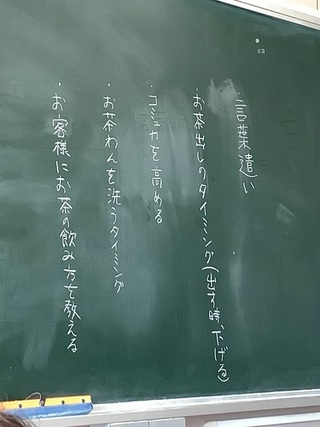 ・言葉遣い
・お茶出しのタイミング(出す時、下げる)
・コミュ力を高める
・お茶わんを洗うタイミング
・お客様にお茶の飲み方を教える